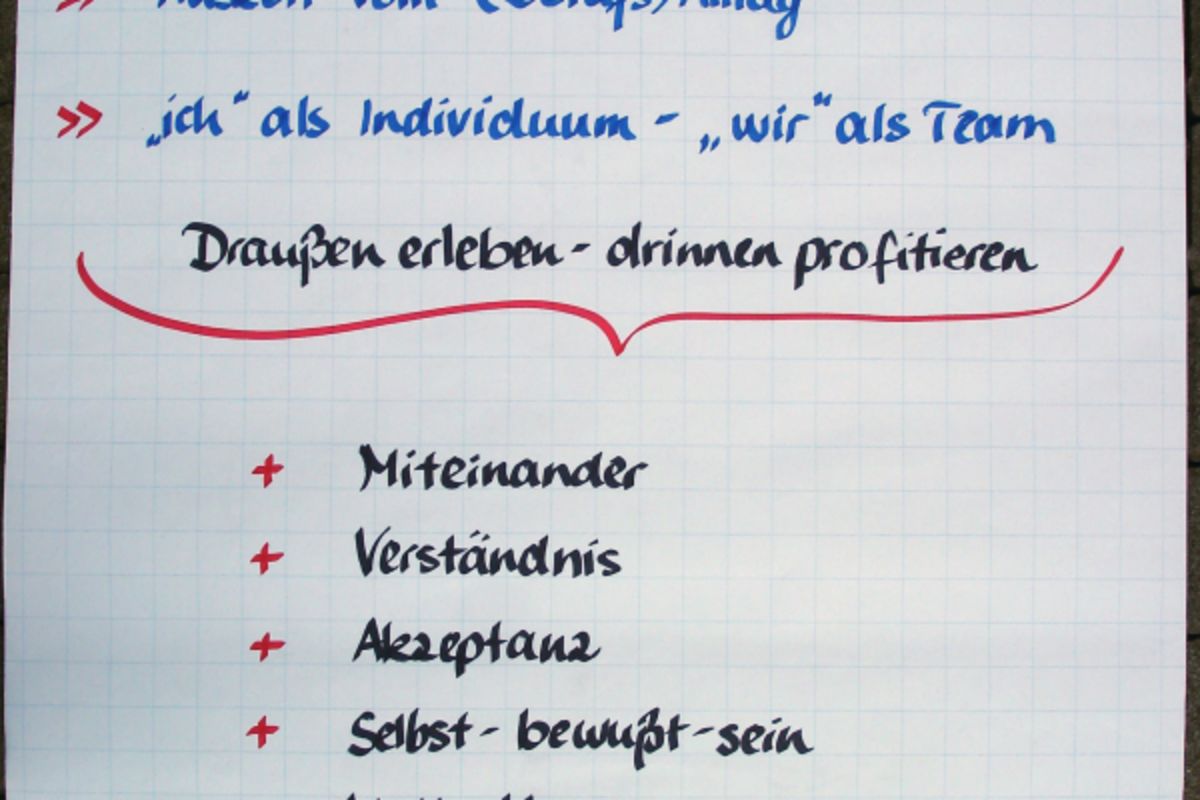 » vom (Berufs)Alltag
» „ich“ als Individuum - „wir“ als Team
Draußen erleben - drinnen profitieren
+ Miteinander
+ Verständnis
+ Akzeptanz
+ Selbst-bewußt-sein